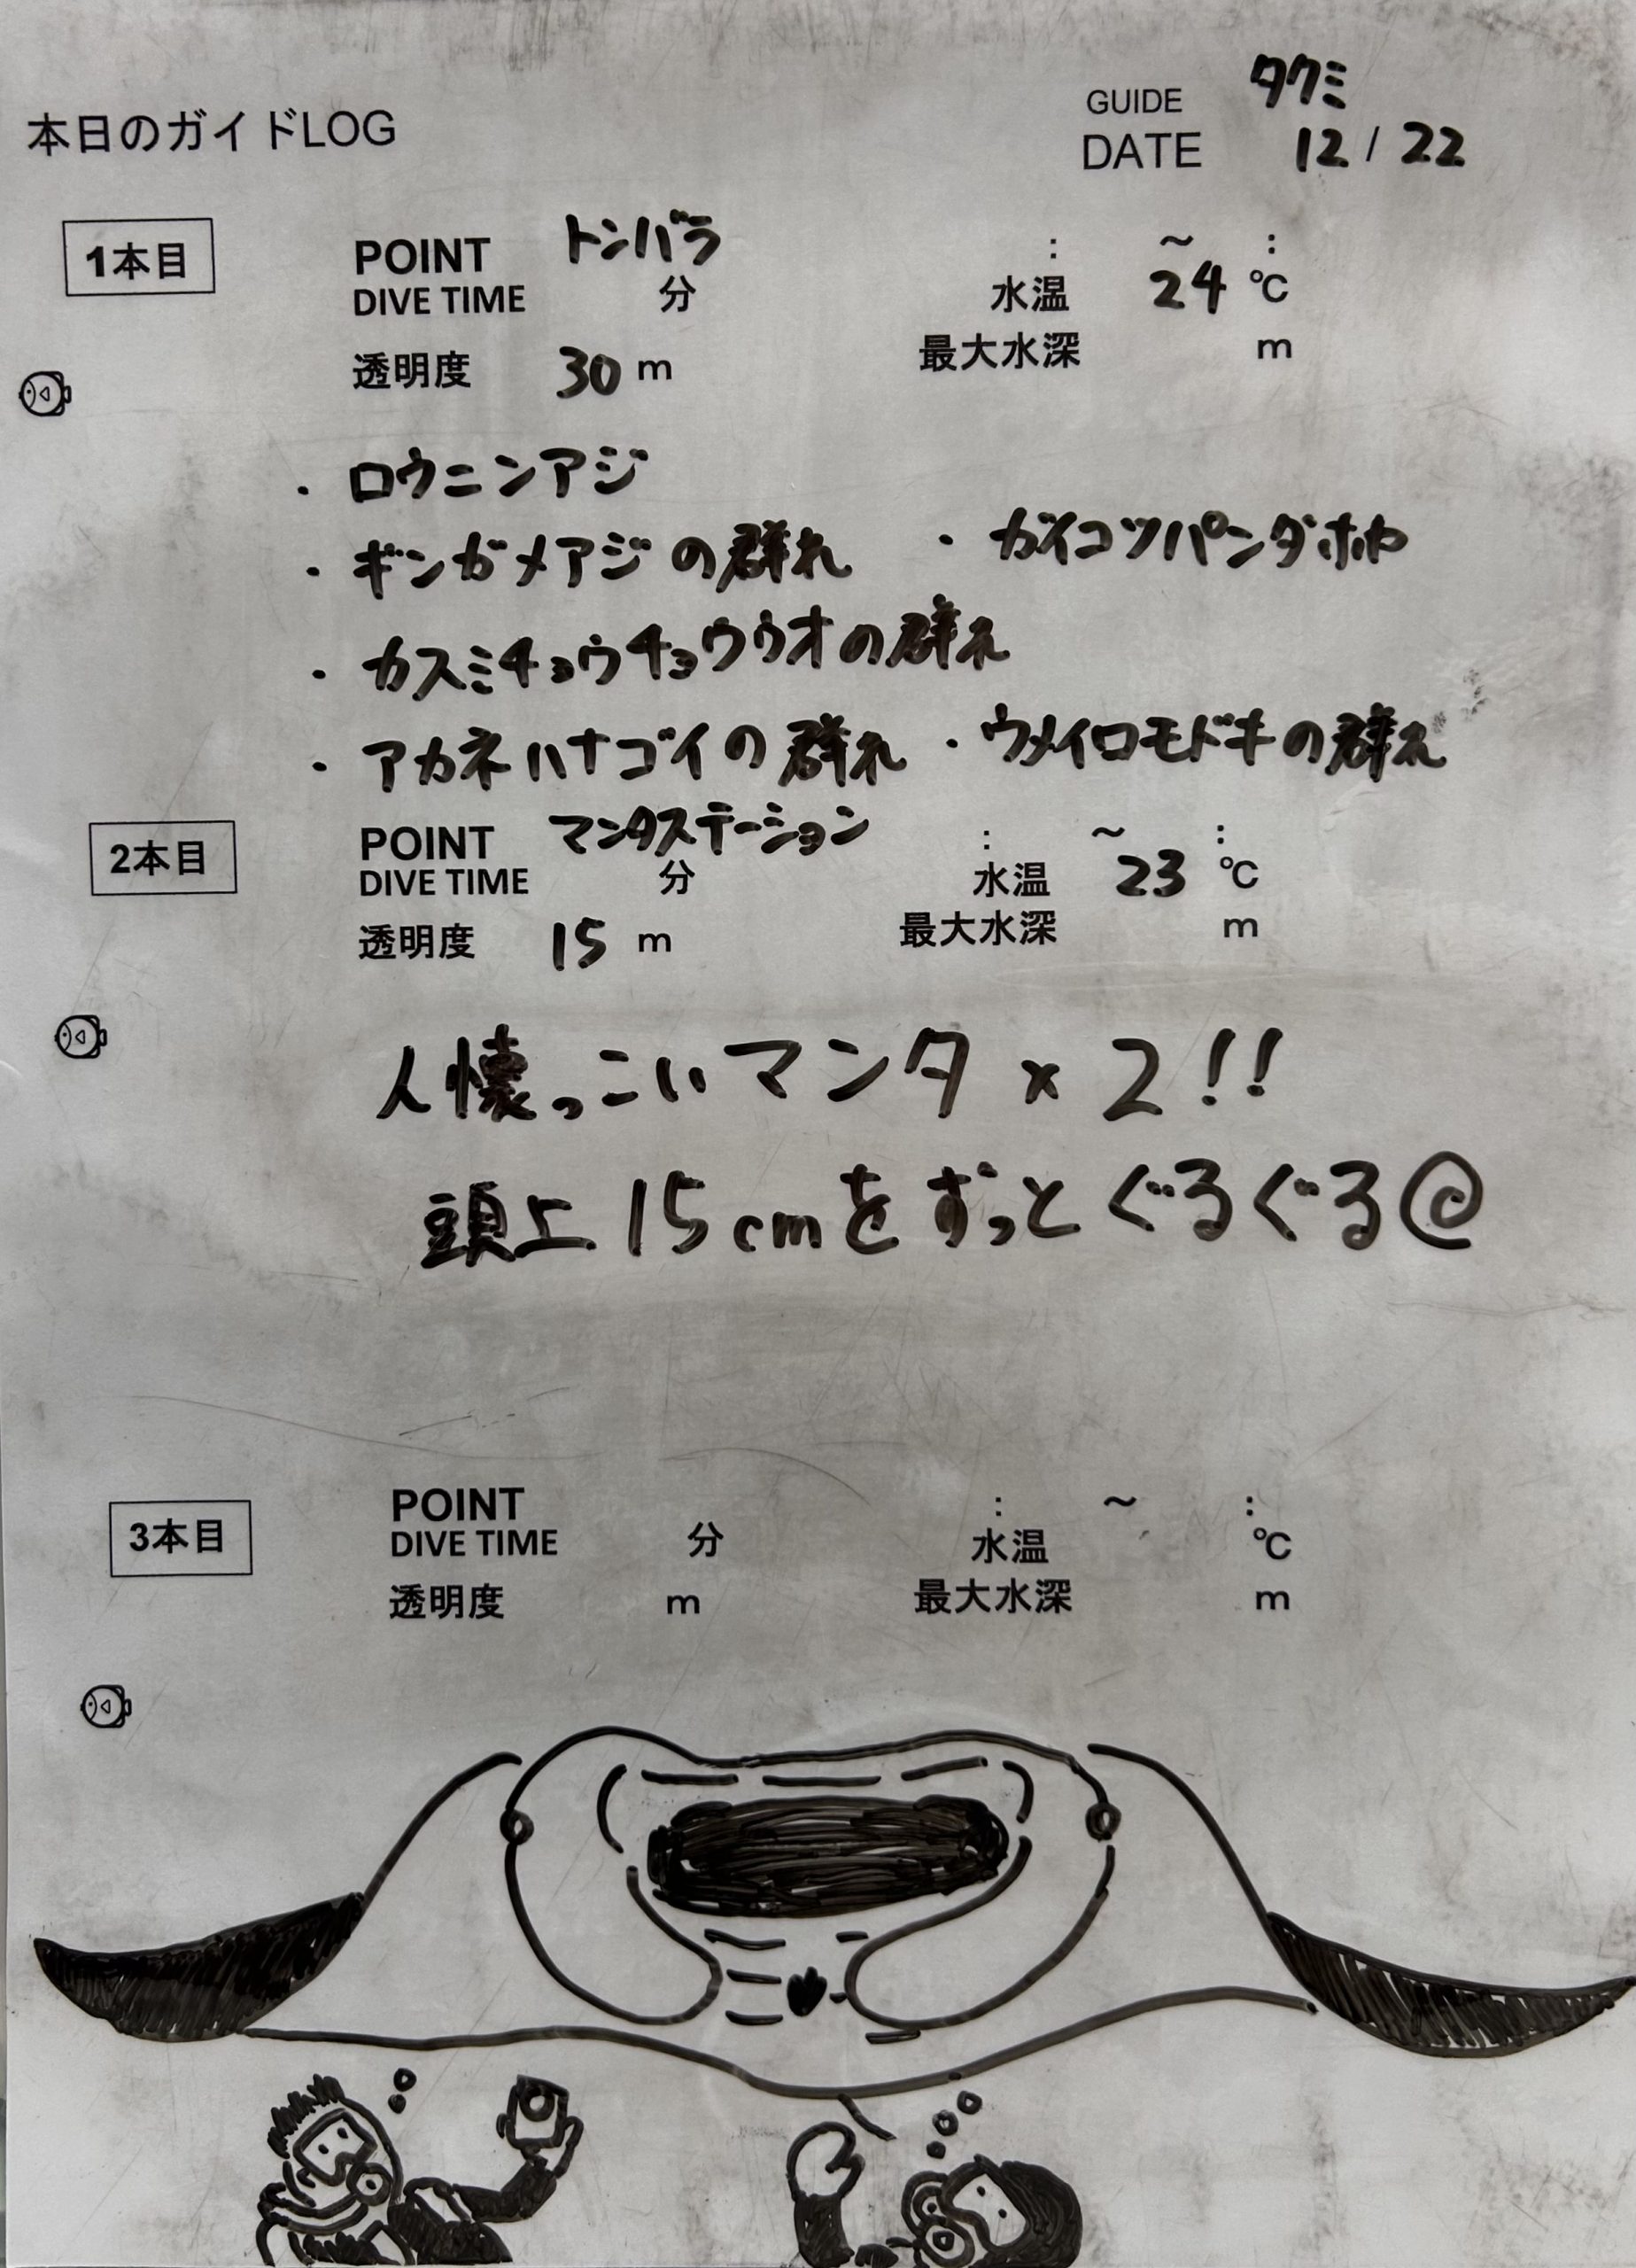 GUIDE タクミ
本日のガイドLOG
DATE 12 / 22
1本目
POINT トンバラ : ~ :
DIVE TIME 分 水温 24 ℃
透明度 30 m 最大水深 m
・ロウニンアジ
・ギンガメアジの群れ ・ガイコツパンダホヤ
・カスミチョウチョウウオの群れ
・アカネハナゴイの群れ ・ウメイロモドキの群れ
2本目
POINT マンタステーション : ~ :
DIVE TIME 分 水温 23 ℃
透明度 15 m 最大水深 m
人懐っこいマンタ×2!!
頭上15cmをずっとぐるぐる@
3本目
POINT : ~ :
DIVE TIME 分 水温 ℃
透明度 m 最大水深 m